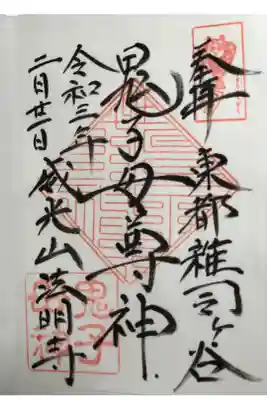 奉拝 東都雑司ヶ谷
鬼子母尊神
令和三年
二月廿一日
威光山法明寺